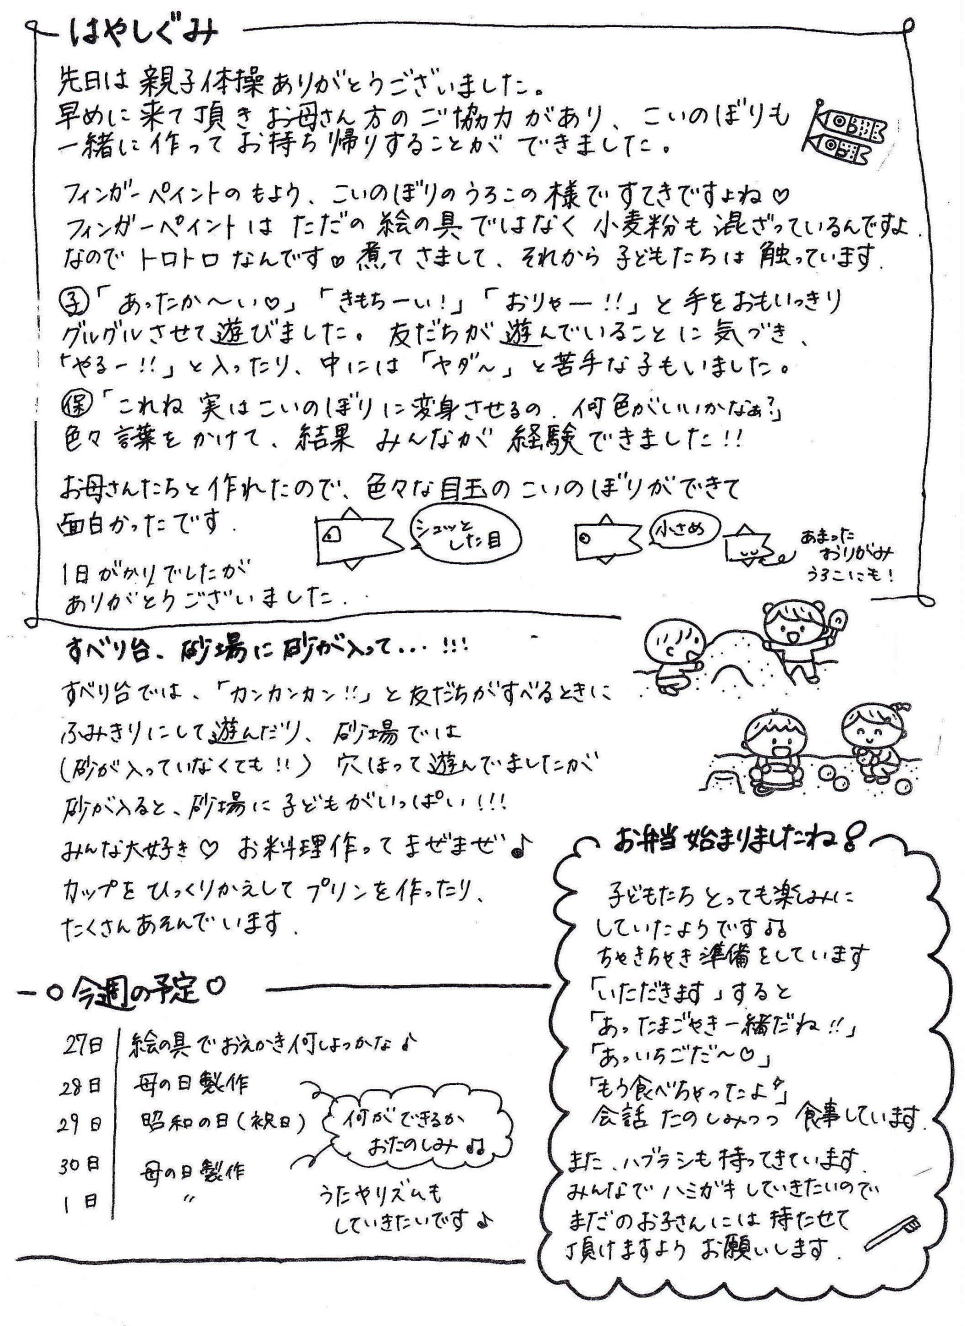 はやしぐみ
先日は親子体操ありがとうございました。
早めに来て頂きお母さん方のご協力があり、こいのぼりも
一緒に作ってお持ち帰りすることができました。
フィンガーペイントのもよう、こいのぼりのうろこの様ですてきですよね♡
フィンガーペイントはただの絵の具ではなく小麦粉も混ざっているんですよ.
なのでトロトロなんです♡煮てさまして、それから子どもたちは触っています.
子「あったか〜い♡」「きもちーい!」「おりゃー!!」と手をおもいっきり
グルグルさせて遊びました。友だちが遊んでいることに気づき、
「やるー!!」と入ったり、中には「ヤダ〜」と苦手な子もいました。
保「これね実はこいのぼりに変身させるの.何色がいいかなぁ?」
色々言葉をかけて、結果みんなが経験できました!!
お母さんたちと作れたので、色々な目玉のこいのぼりができて
面白かったです.
シュッと
した目
小さめ
あまった
おりがみ
うろこにも!
1日がかりでしたが
ありがとうございました.
すべり台、砂場に砂が入って...!!!
すべり台では、「カンカンカン!!」と友だちがすべるときに
ふみきりにして遊んだり、砂場では
(砂が入っていなくても!!) 穴ほって遊んでいましたが
砂が入ると、砂場に子どもがいっぱい!!!
みんな大好き♡お料理作ってまぜまぜ♪
カップをひっくりかえしてプリンを作ったり、
たくさんあそんでいます.
○今週の予定○
27日 絵の具でおえかき何しよっかな♪
28日 母の日製作
29日 昭和の日(祝日)
30日 母の日製作
1日 〃
何ができるか
おたのしみ♫
うたやリズムも
していきたいです♪
お弁当始まりましたね!
子どもたちとっても楽しみに
していたようです♫
ちゃきちゃき準備をしています
「いただきます」すると
「あったまごやき一緒だね!!」
「あっいちごだ〜♡」
「もう食べちゃったよ」
会話たのしみつつ食事しています.
また、ハブラシも持ってきています.
みんなでハミガキしていきたいので
まだのお子さんには持たせて
頂けますようお願いします.